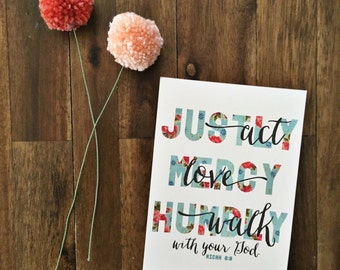 act JUSTLY
love MERCY
walk HUMBLY
with your God.
MICAH 6:8